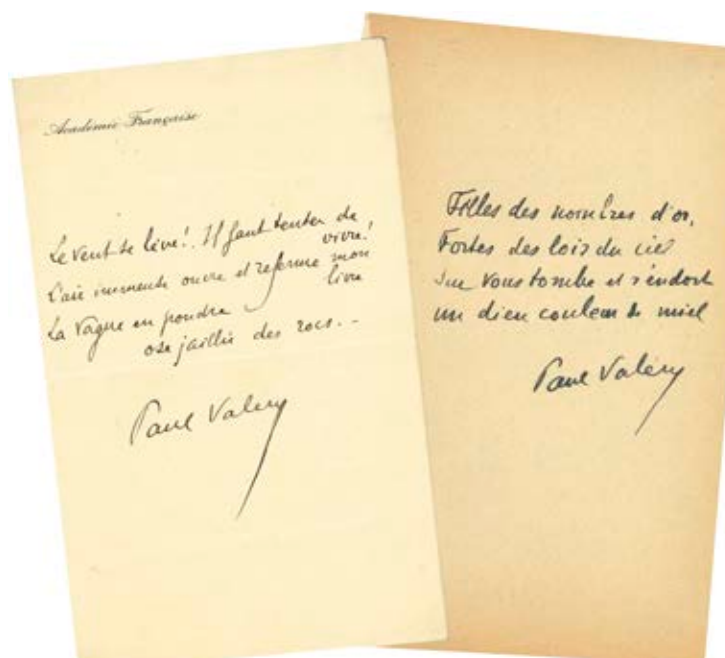 Académie Française
Le vent se lève!. Il faut tenter de
vivre!
L'air immense ouvre et referme mon
livre
La vague en poudre
ose jaillir des rocs. -
Paul Valéry
Filles des nombres d'or,
Fortes des lois du ciel
Sur vous tombe et s'endort
un dieu couleur de miel
Paul Valéry